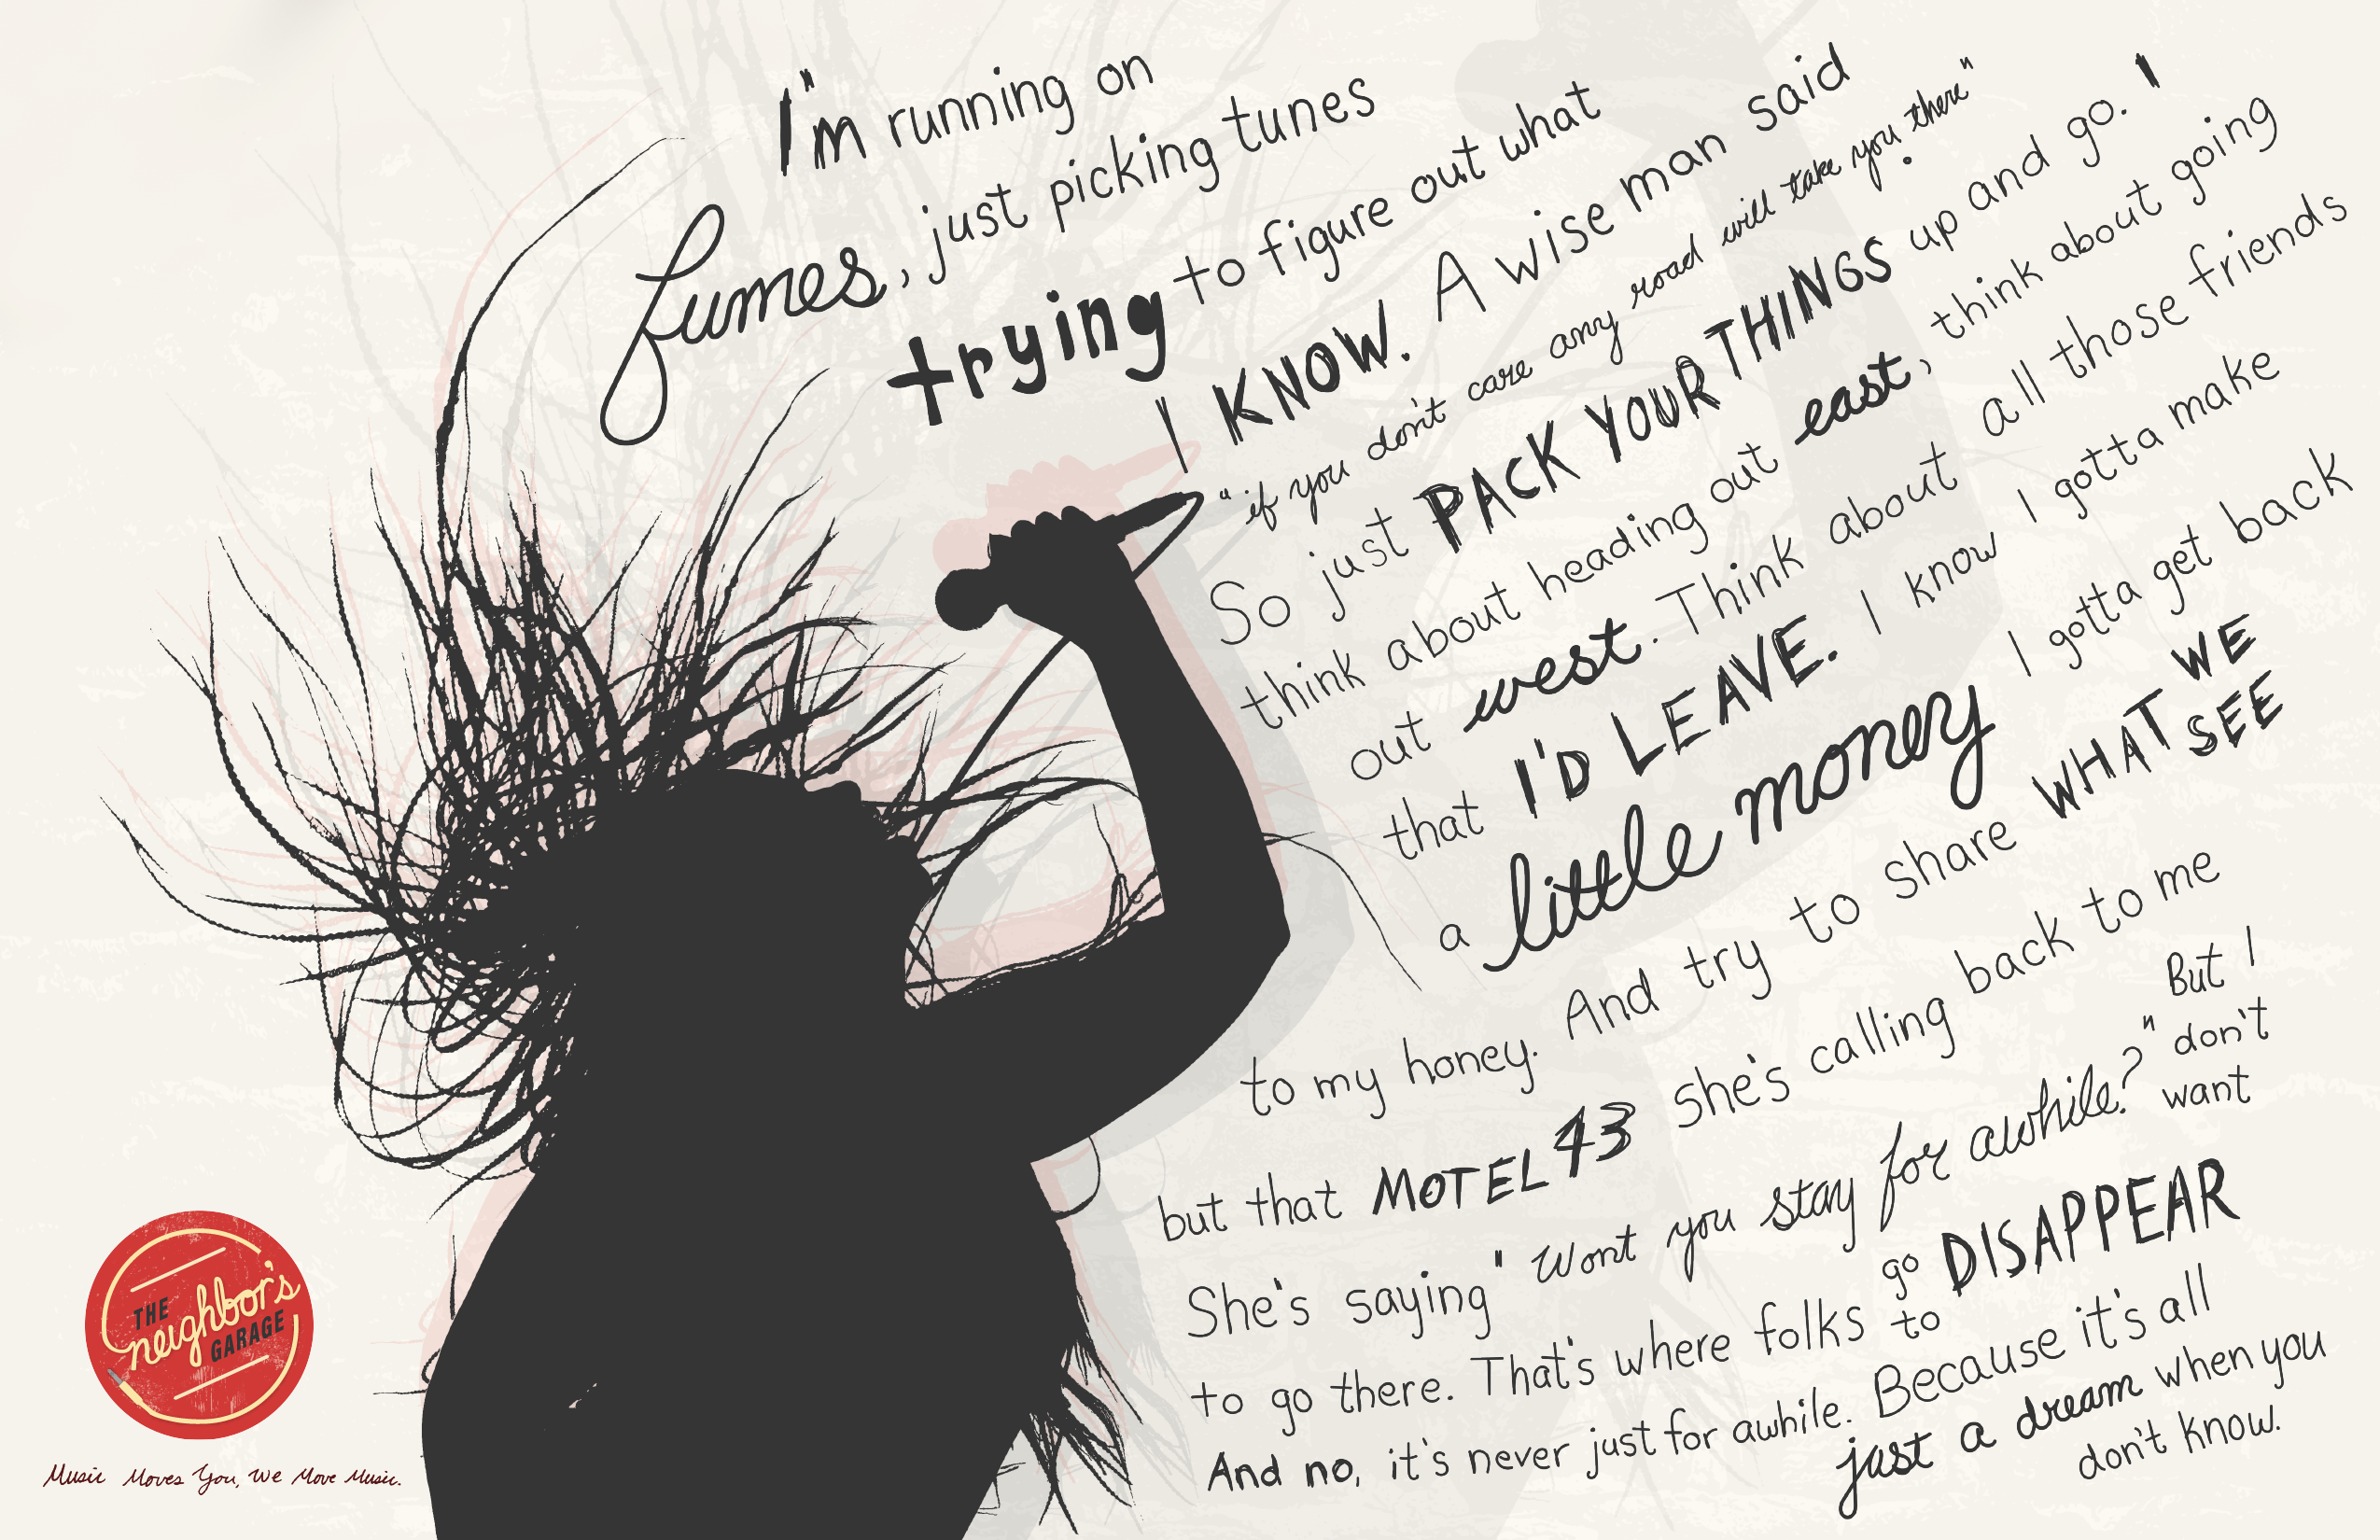 I"m running on
fumes, just picking tunes
trying to figure out what
I KNOW. A wise man said
"if you don't care any road will take you there"
So just PACK YOUR THINGS up and go. I
think about heading out east, think about going
out west. Think about all those friends
that I'D LEAVE. I know I gotta make
a little money I gotta get back
to my honey. And try to share WHAT WE SEE
but that MOTEL 43 she's calling back to me
She's saying "Wont you stay for awhile?" But I don't want
to go there. That's where folks go to DISAPPEAR
And no, it's never just for awhile. Because it's all
just a dream when you
don't know.
THE
neighbor's
GARAGE
Music Moves You, We Move Music.